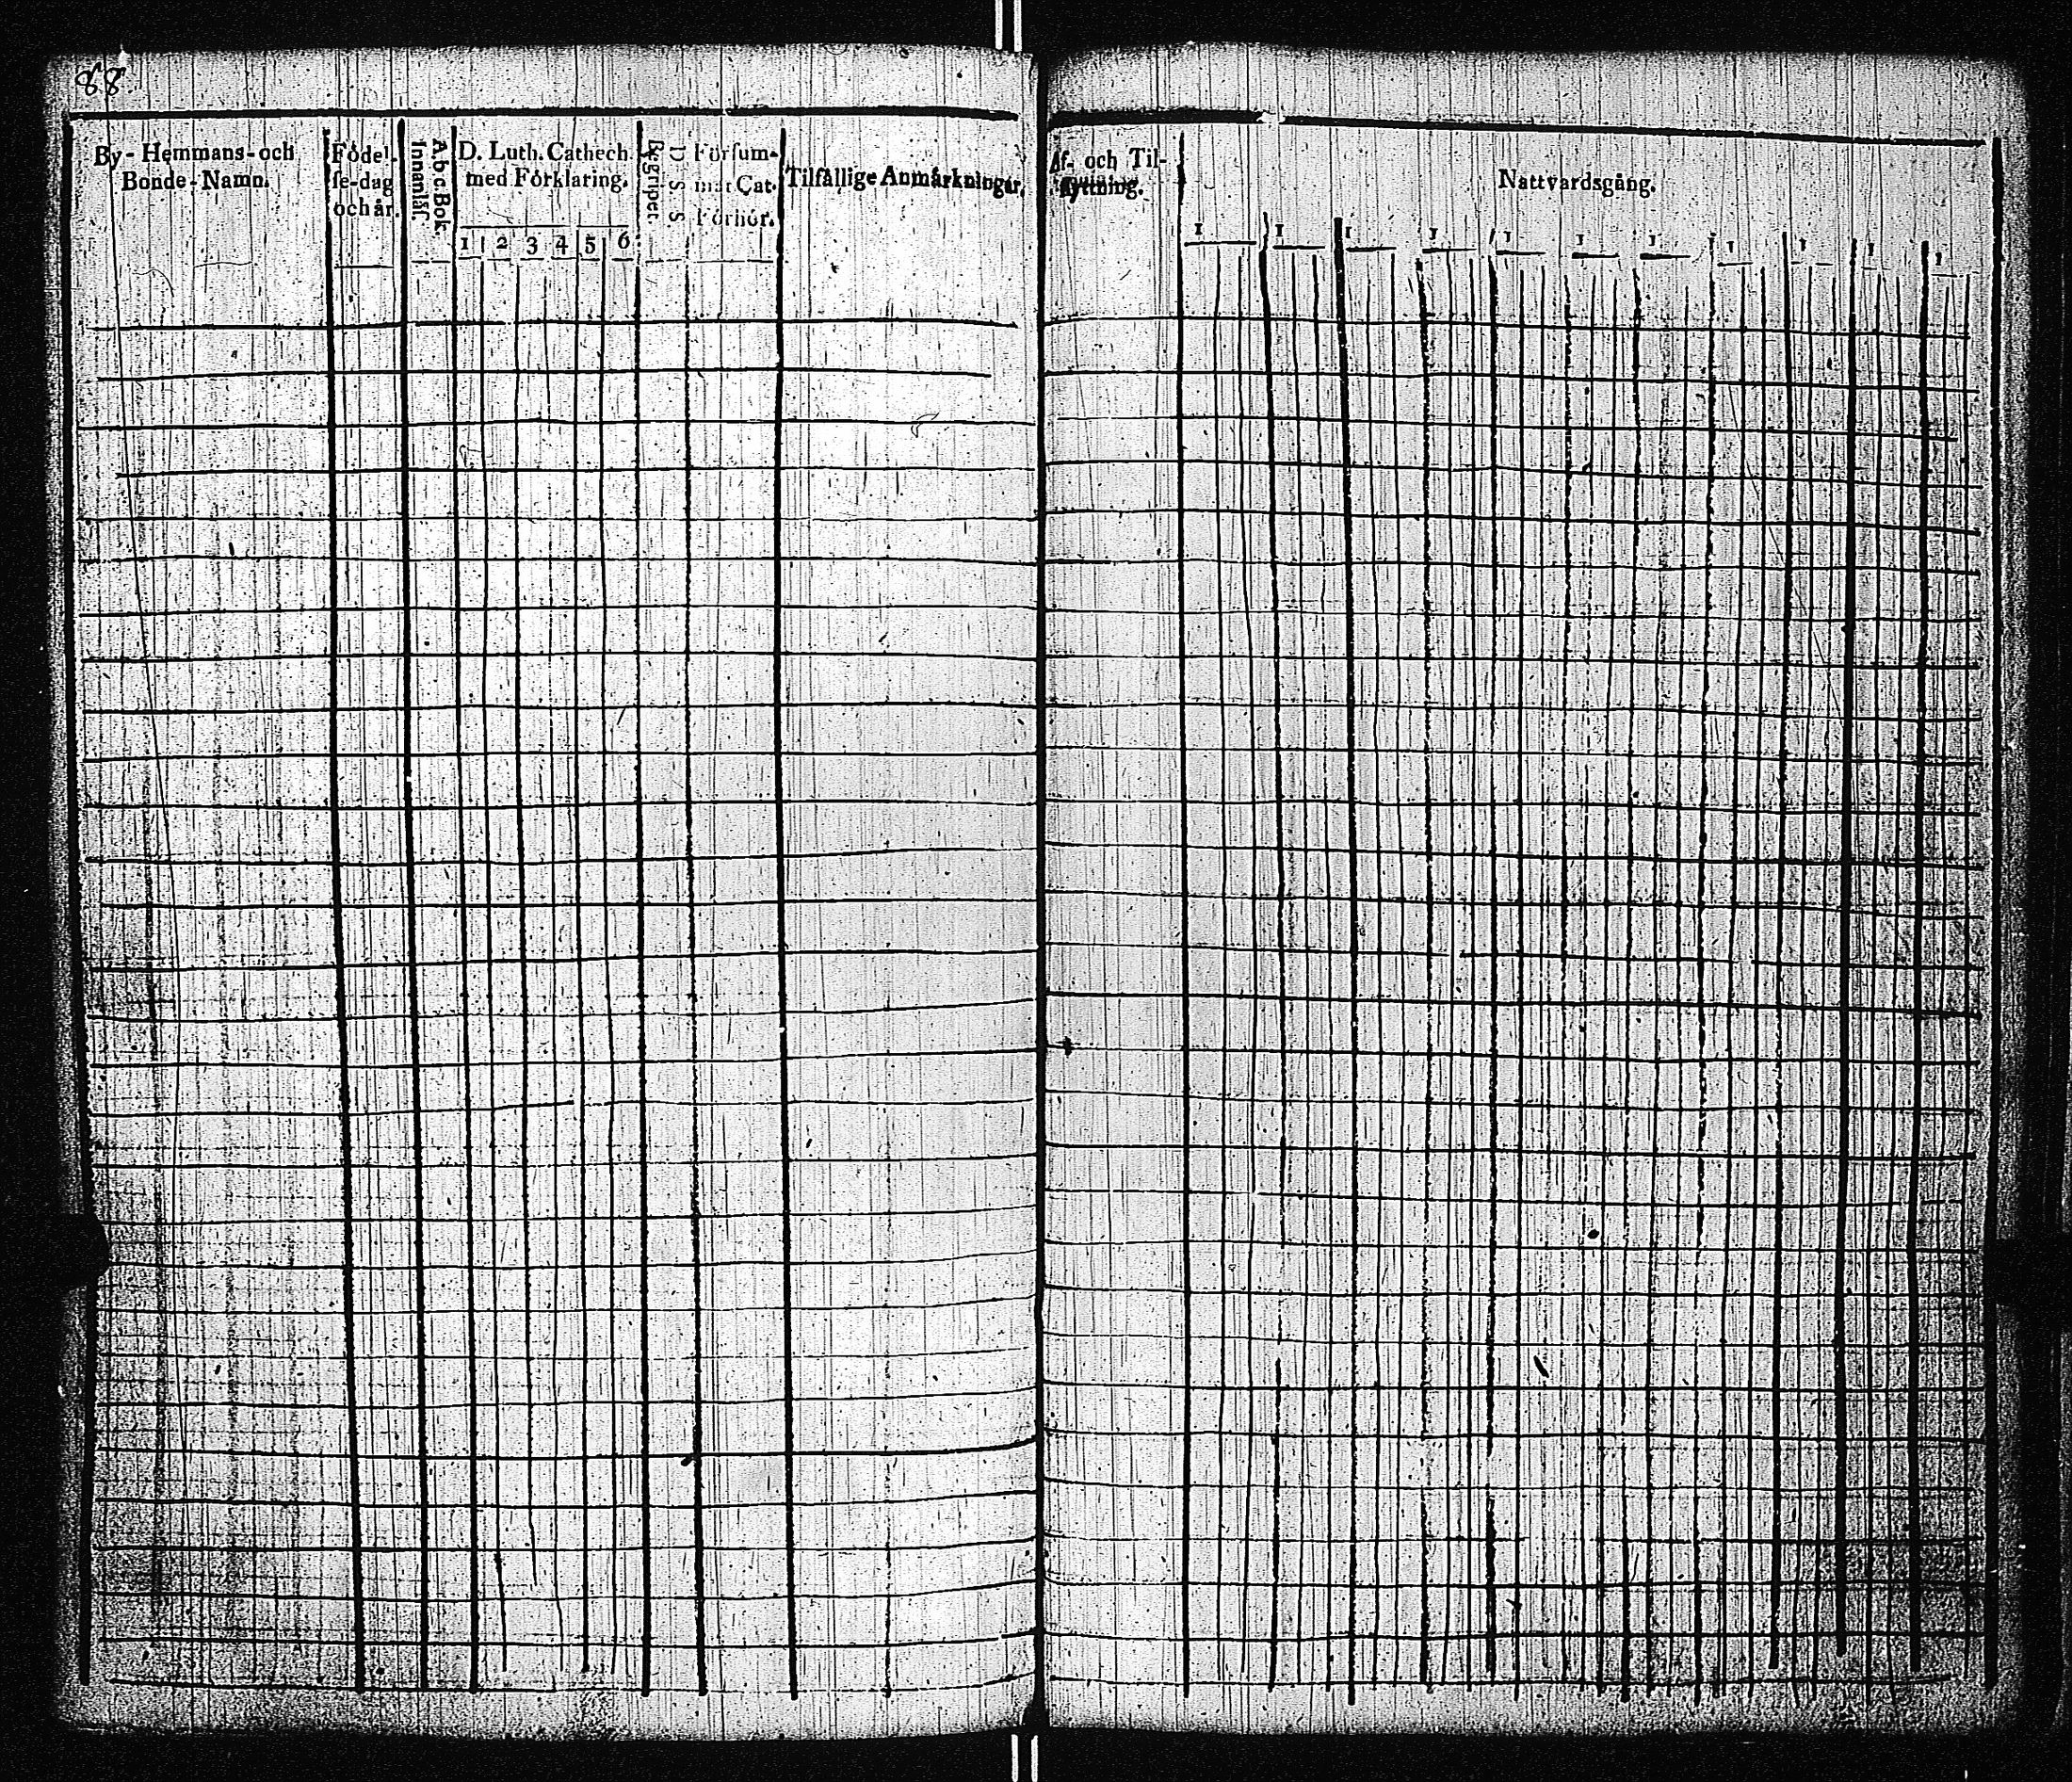 88
By- Hemmans- och
Bonde-Namn.
Födel-
se-dag
och år.
A.b.c. Bok.
Innanläs.
D. Luth. Cathech.
med Förklaring.
1 2 3 4 5 6
Begripet.
D. S. S.
Försum-
mat Cat.
Förhör.
Tilfällige Anmärkningar.
Af- och Til-
flyttning.
Nattvardsgång.
1 1 1 1 1 1 1 1 1 1 1